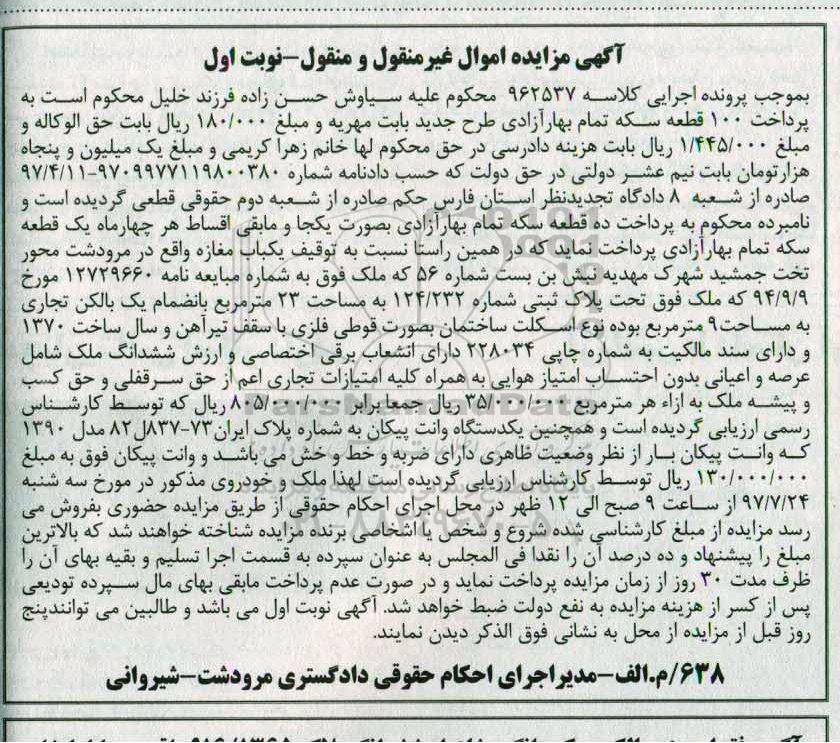 آگهی مزایده اموال غیرمنقول و منقول-نوبت اول
بموجب پرونده اجرایی کلاسه ۹۶۲۵۳۷ محکوم علیه سیاوش حسن زاده فرزند خلیل محکوم است به
پرداخت ۱۰۰ قطعه سکه تمام بهارآزادی طرح جدید بابت مهریه و مبلغ ۱۸۰/۰۰۰ ریال بابت حق الوکاله و
مبلغ ۱/۴۴۵/۰۰۰ ریال بابت هزینه دادرسی در حق محکوم لها خانم زهرا کریمی و مبلغ یک میلیون و پنجاه
هزارتومان بابت نیم عشر دولتی در حق دولت که حسب دادنامه شماره ۹۷۰۹۹۷۷۱۱۹۸۰۰۳۸۰-۹۷/۴/۱۱
صادره از شعبه ۸ دادگاه تجدیدنظر استان فارس حکم صادره از شعبه دوم حقوقی قطعی گردیده است و
نامبرده محکوم به پرداخت ده قطعه سکه تمام بهارآزادی بصورت یکجا و مابقی اقساط هر چهارماه یک قطعه
سکه تمام بهارآزادی پرداخت نماید که در همین راستا نسبت به توقیف یکباب مغازه واقع در مرودشت محور
تخت جمشید شهرک مهدیه نبش بن بست شماره ۵۶ که ملک فوق به شماره مبایعه نامه ۱۲۷۲۹۶۶۰ مورخ
۹۴/۹/۹ که ملک فوق تحت پلاک ثبتی شماره ۱۲۴/۲۳۲ به مساحت ۲۳ مترمربع بانضمام یک بالکن تجاری
به مساحت۹ مترمربع بوده نوع اسکلت ساختمان بصورت قوطی فلزی با سقف تیرآهن و سال ساخت ۱۳۷۰
و دارای سند مالکیت به شماره چاپی ۲۲۸۰۳۴ دارای انشعاب برقی اختصاصی و ارزش ششدانگ ملک شامل
عرصه و اعیانی بدون احتساب امتیاز هوایی به همراه کلیه امتیازات تجاری اعم از حق سرقفلی و حق کسب
و پیشه ملک به ازاء هر مترمربع ۳۵/۰۰۰/۰۰۰ ریال جمعا برابر ۸۰۵/۰۰۰/۰۰۰ ریال که توسط کارشناس
رسمی ارزیابی گردیده است و همچنین یکدستگاه وانت پیکان به شماره پلاک ایران۷۳-۸۳۷ل۸۲ مدل ۱۳۹۰
که وانت پیکان بار از نظر وضعیت ظاهری دارای ضربه و خط و خش می باشد و وانت پیکان فوق به مبلغ
۱۳۰/۰۰۰/۰۰۰ ریال توسط کارشناس ارزیابی گردیده است لهذا ملک و خودروی مذکور در مورخ سه شنبه
۹۷/۷/۲۴ از ساعت ۹ صبح الی ۱۲ ظهر در محل اجرای احکام حقوقی از طریق مزایده حضوری بفروش می
رسد مزایده از مبلغ کارشناسی شده شروع و شخص یا اشخاصی برنده مزایده شناخته خواهند شد که بالاترین
مبلغ را پیشنهاد و ده درصد آن را نقدا فی المجلس به عنوان سپرده به قسمت اجرا تسلیم و بقیه بهای آن را
ظرف مدت ۳۰ روز از زمان مزایده پرداخت نماید و در صورت عدم پرداخت مابقی بهای مال سپرده تودیعی
پس از کسر از هزینه مزایده به نفع دولت ضبط خواهد شد. آگهی نوبت اول می باشد و طالبین می توانندپنج
روز قبل از مزایده از محل به نشانی فوق الذکر دیدن نمایند.
۶۳۸/م.الف-مدیراجرای احکام حقوقی دادگستری مرودشت-شیروانی